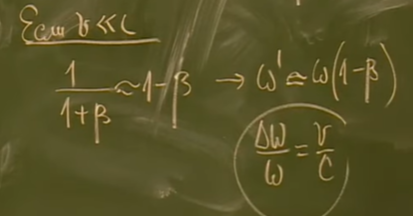 Если v << c
1/(1+β) ≈ 1-β → ω' ≃ ω(1-β)
Δω/ω = v/c